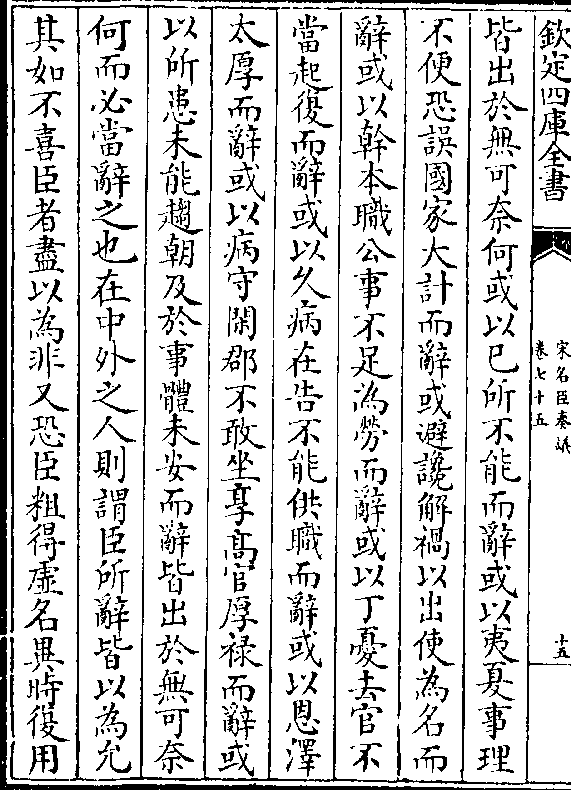 欽定四庫全書
宋名臣奏議
卷七十五
十五
皆出於無可奈何或以已所不能而辭或以夷夏事理
不便恐誤國家大計而辭或避讒解禍以出使為名而
辭或以幹本職公事不足為勞而辭或以丁憂去官不
當起復而辭或以久病在告不能供職而辭或以恩澤
太厚而辭或以病守閑郡不敢坐享髙官厚禄而辭或
以所患未能趨朝及於事體未安而辭皆出於無可奈
何而必當辭之也在中外之人則謂臣所辭皆以為允
其如不喜臣者盡以為非又恐臣粗得虛名異時復用